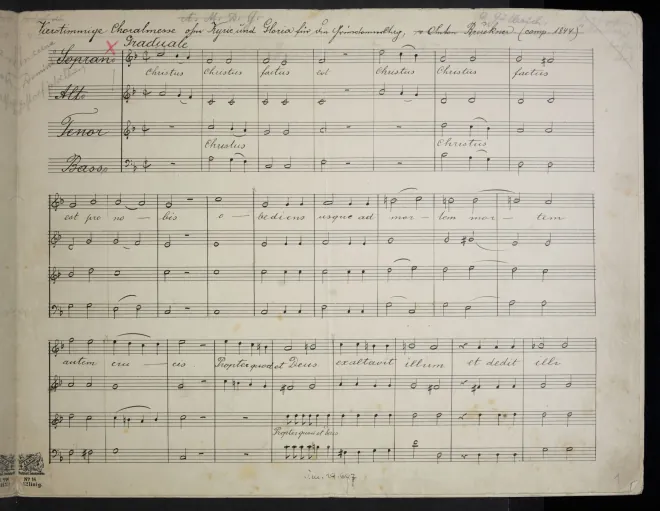 Vierstimmige Choralmesse ohne Kyrie und Gloria für den Gründonnerstag. v. Anton Bruckner (comp. 1844.)
Graduale
Soprani
Christus Christus factus est Christus Christus factus
Alti
Tenor
Christus Christus
Basse
est pro no – bis o – bediens usque ad mor – tem mor – tem
autem cru – cis Propter quod et Deus exaltavit illum et dedit illi
Propter quod et Deus
Nº 14